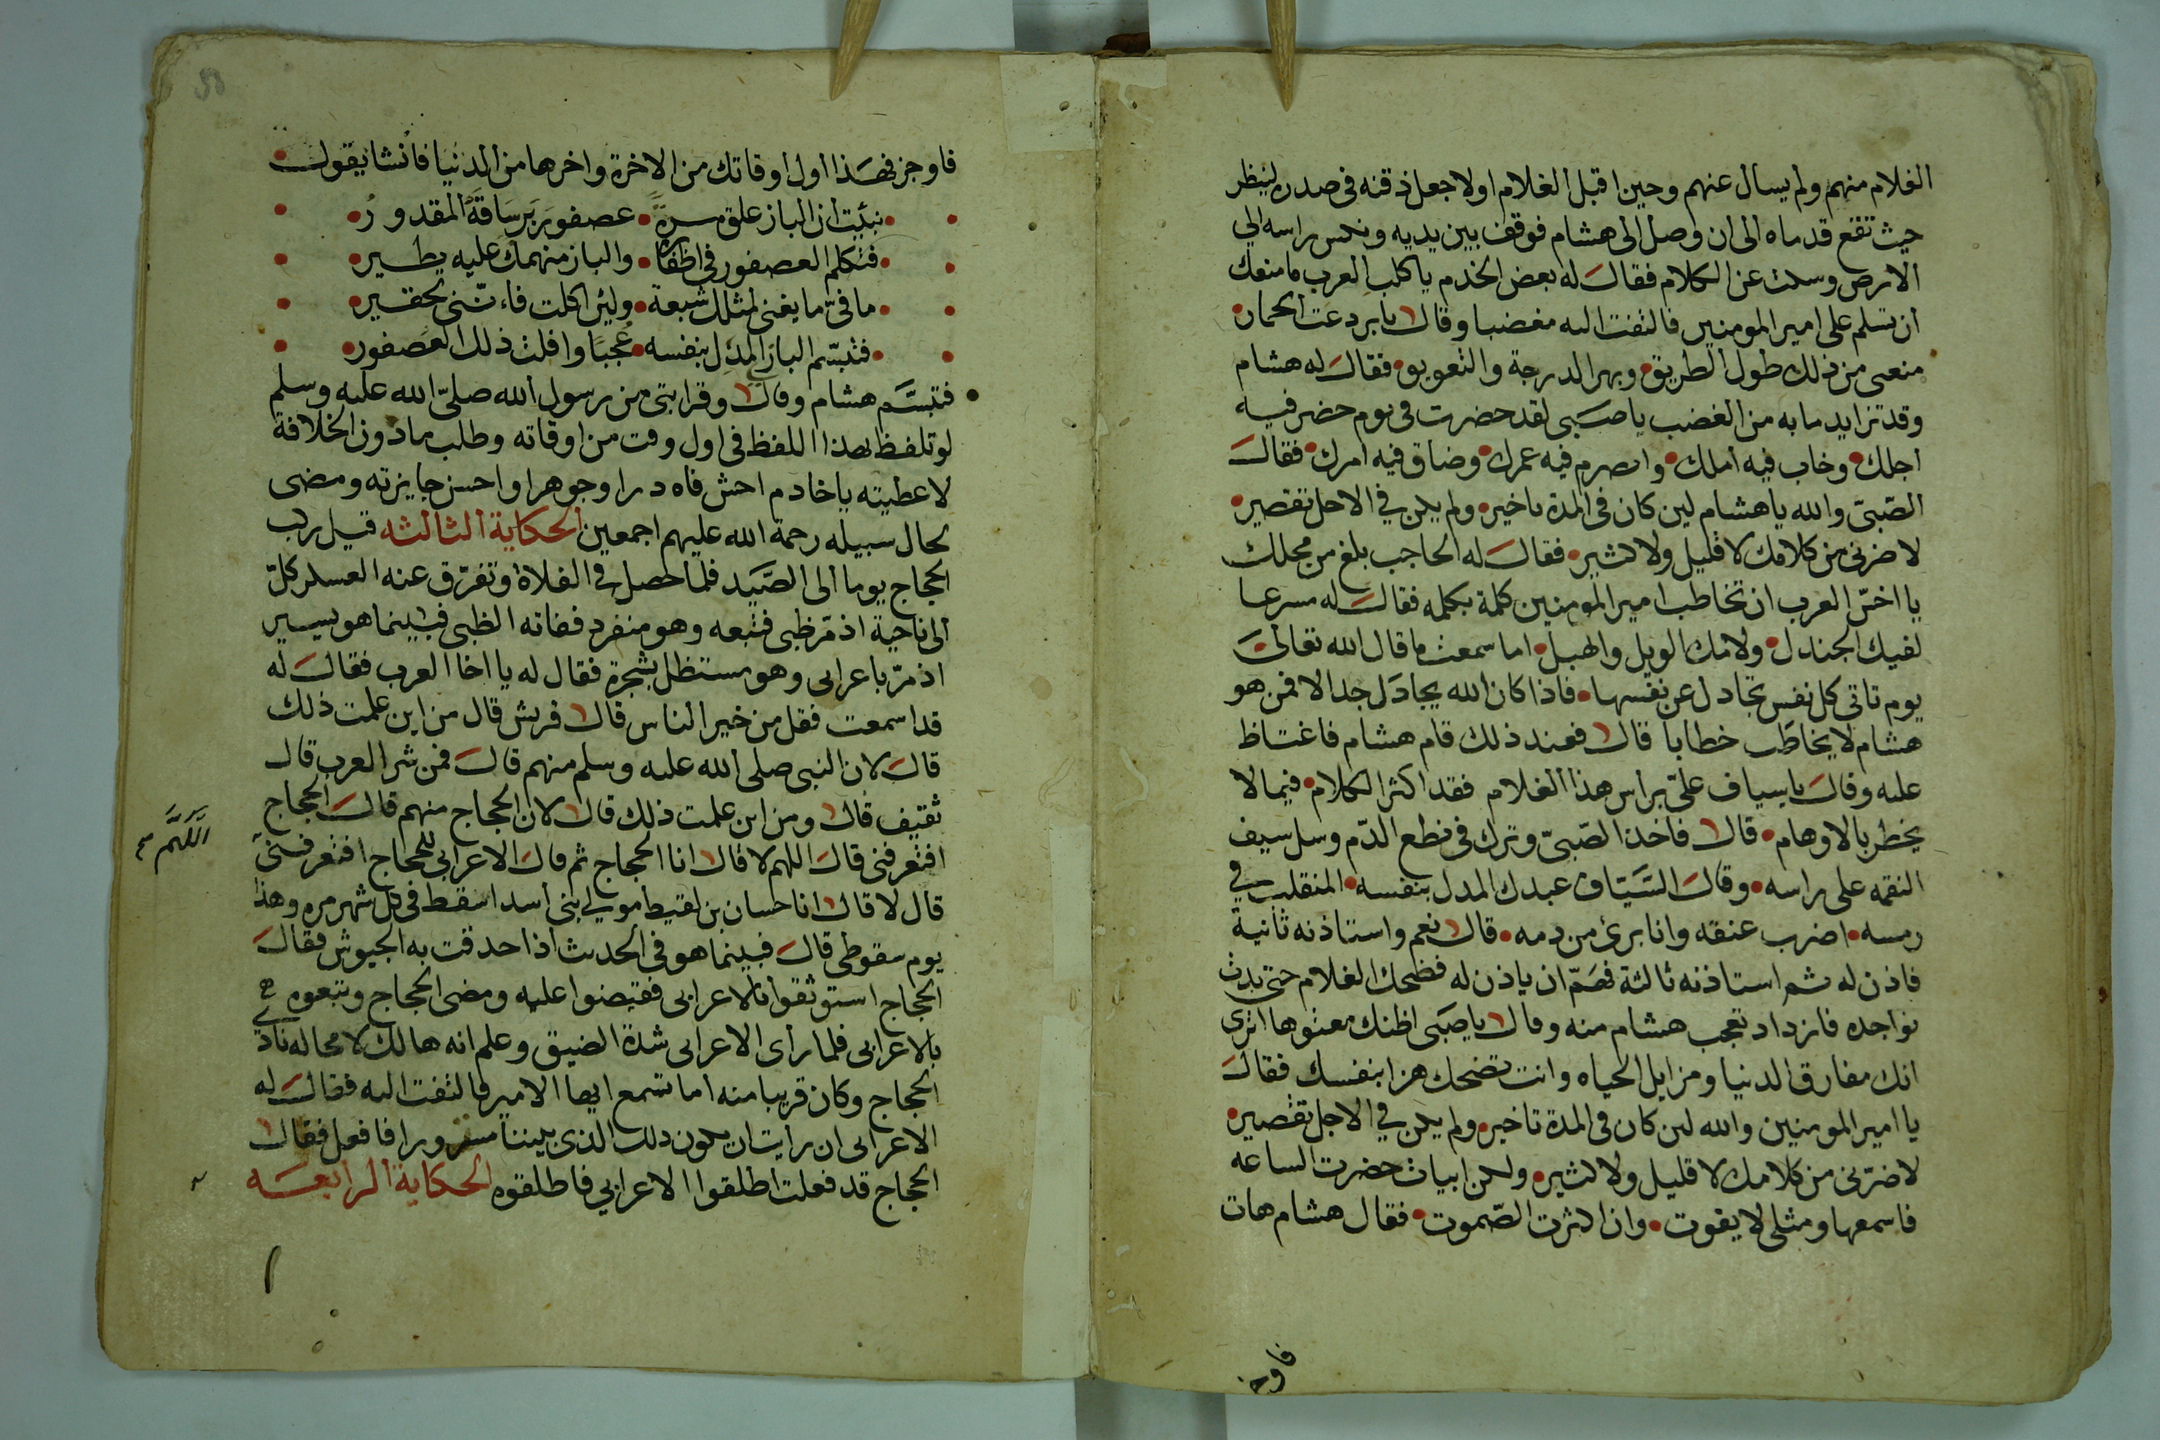 الغلام منهم ولم يسال عنهم وحين اقبل الغلام اولا جعل ذقنه فى صدره لينظر
حيث تقع قدماه الى ان وصل الى هشام فوقف بين يديه ونكس راسه الي
الارض وسكت عن الكلام فقال له بعض الخدم يا كلب العرب ما منعك
ان تسلم على امير المومنين فالتفت اليه مغضبا وقال يا بردعت الحمار
منعنى من ذلك طول الطريق وبهر الدرجة والتعويق فقال له هشام
وقد تزايد ما به من الغضب يا صبى لقد حضرت فى يوم حضر فيه
اجلك وخاب فيه املك وانصرم فيه عمرك وضاق فيه امرك فقال
الصّبىّ والله يا هشام لين كان فى المدة تاخير ولم يكن في الاجل تقصير
لا ضرنى من كلامك لا قليل ولا كثير فقال له الحاجب بلغ من محلك
يا اخسّ العرب ان تخاطب امير المومنين كلمة بكلمه فقال له مسرعا
لفيك الجندل ولامك الويل والهبل اما سمعت ما قال الله تعالى
يوم تاتى كل نفس تجادل عن نفسها فاذا كان الله يجادل جدالا فمن هو
هشام لا يخاطب خطابا قال فعند ذلك قام هشام فاغتاظ
عليه وقال يا سياف علىّ براس هذا الغلام فقد اكثر الكلام فيما لا
يخطر بالاوهام قال فاخذ الصّبىّ وترك فى نطع الدّم وسل سيف
النقمه على راسه وقال السّيّاف عبدك المدل بنفسه المنقلب في
رمسه اضرب عنقه وانا برئ من دمه قال نعم واستاذنه ثانية
فاذن له ثم استاذنه ثالثة فهمّ ان ياذن له فضحك الغلام حتى بدت
نواجده فازداد تعجب هشام منه وقال يا صبى اظنك معتوها اترى
انك مفارق الدنيا ومزايل الحياه وانت تضحك هزا بنفسك فقال
يا امير المومنين والله لين كان فى المدة تاخير ولم يكن في الاجل تقصير
لا ضرّنى من كلامك لا قليل ولا كثير ولكن ابيات حضرت الساعه
فاسمعها ومثلى لا يفوت وان اكثرت الصّموت فقال هشام هات
فاوجز
فاوجز فهذا اول اوقاتك من الاخرة واخرها من الدنيا فانشا يقول
نبئت ان الباز علق مرة عصفور بر ساقه المقدور
فتكلم العصفور فى اظفاره والباز منهمك عليه يطير
ما فيّ ما يغنى لمثلك شبعة ولئن اكلت فاننى لحقير
فتبسّم الباز المدل بنفسه عُجبًا وافلت ذلك العصفور
فتبسَّم هشام وقال وقرابتى من رسول الله صلىّ الله عليه وسلم
لو تلفظ بهذا اللفظ فى اول وقت من اوقاته وطلب مادون الخلافة
لاعطيته يا خادم احش فاه درا وجوهرا واحسن جايزته ومضى
لحال سبيله رحمة الله عليهم اجمعين الحكاية الثالثه قيل ركب
الحجاج يوما الى الصَّيد فلما حصل في الفلاة وتفرّق عنه العسكر كلّ
الى ناحية اذ مرّ ظبى فتبعه وهو منفرد ففاته الظبى فبينما هو يسير
اذ مرّ باعرابى وهو مستظل بشجرة فقال له يا اخا العرب فقال له
قد اسمعت فقل من خير الناس قال قريش قال من اين علمت ذلك
قال لان النبى صلى الله عليه وسلم منهم قال فمن شر العرب قال
ثقيف قال ومن اين علمت ذلك قال لان الحجاج منهم قال الحجاج
افتعرفنى قال اللهم لا قال انا الحجاج ثم قال الاعرابى للحجاج افتعرفنى
اللّهم
قال لا قال انا حسان بن لقيط مولي بنى اسد اسقط فى كل شهر مره وهذا
يوم سقوطى قال فبينما هو فى الحديث اذا حدقت به الجيوش فقال
الحجاج استوثقوا بالاعرابى فقبضوا عليه ومضى الحجاج وتبعوه
بالاعرابى فلما راى الاعرابى شدة الضيق وعلم انه هالك لا محاله نادى
الحجاج وكان قريبا منه اما تسمع ايها الامير فالتفت اليه فقال له
الاعرابى ان رايت ان يكون ذلك الذى بيننا مستورا فافعل فقال
الحجاج قد فعلت اطلقوا الاعرابي فاطلقوه الحكاية الرابعه